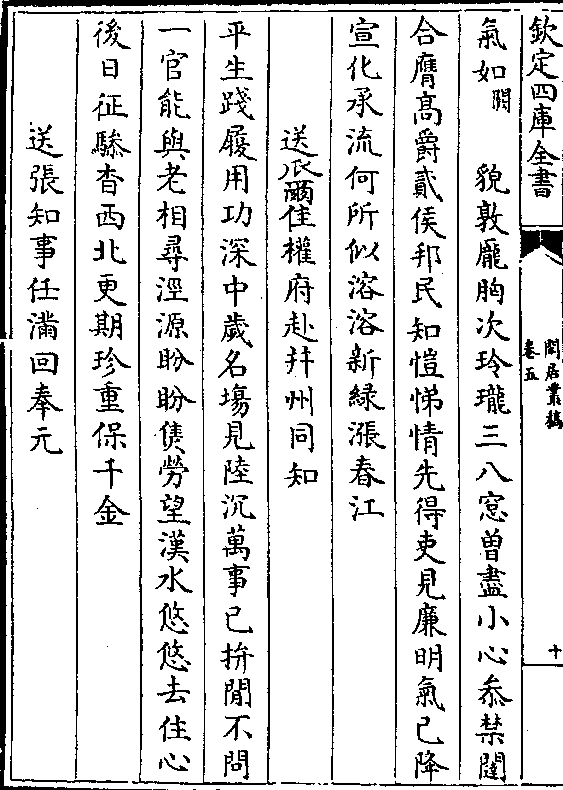 欽定四庫全書
閒居叢稿
卷五
十
氣如闕　貌敦龎胸次玲瓏三八窓曽盡小心叅禁闥
合膺髙爵貳侯邦民知愷悌情先得吏見廉明氣已降
宣化承流何所似溶溶新緑漲春江
送爾佳權府赴幷州同知
平生踐履用功深中歳名塲見陸沉萬事已拚閒不問
一官能與老相尋涇源盼盼僛勞望漢水悠悠去住心
後日征驂杳西北更期珍重保千金
送張知事任滿回奉元